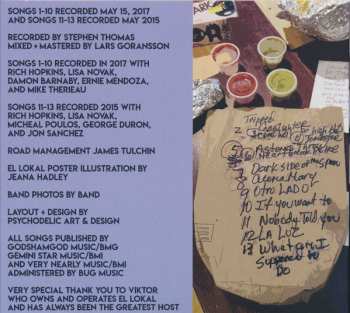 SONGS 1-10 RECORDED MAY 15, 2017
AND SONGS 11-13 RECORDED MAY 2015
RECORDED BY STEPHEN THOMAS
MIXED + MASTERED BY LARS GORANSSON
SONGS 1-10 RECORDED IN 2017 WITH
RICH HOPKINS, LISA NOVAK,
DAMON BARNABY, ERNIE MENDOZA,
AND MIKE THERIEAU
SONGS 11-13 RECORDED 2015 WITH
RICH HOPKINS, LISA NOVAK,
MICHEAL POULOS, GEORGE DURON,
AND JON SANCHEZ
ROAD MANAGEMENT JAMES TULCHIN
EL LOKAL POSTER ILLUSTRATION BY
JEANA HADLEY
BAND PHOTOS BY BAND
LAYOUT + DESIGN BY
PSYCHODELIC ART & DESIGN
ALL SONGS PUBLISHED BY
GODSHAMGOD MUSIC/BMG
GEMINI STAR MUSIC/BMI
AND VERY NEARLY MUSIC/BMI
ADMINISTERED BY BUG MUSIC
VERY SPECIAL THANK YOU TO VIKTOR
WHO OWNS AND OPERATES EL LOKAL
AND HAS ALWAYS BEEN THE GREATEST HOST
Tripped
2
5
7 Dark side of the Spoon
8
9 Otro LADO
10 If you want to
11 Nobody Told You
12 LA LUZ
13 What am I
Supposed to
Do